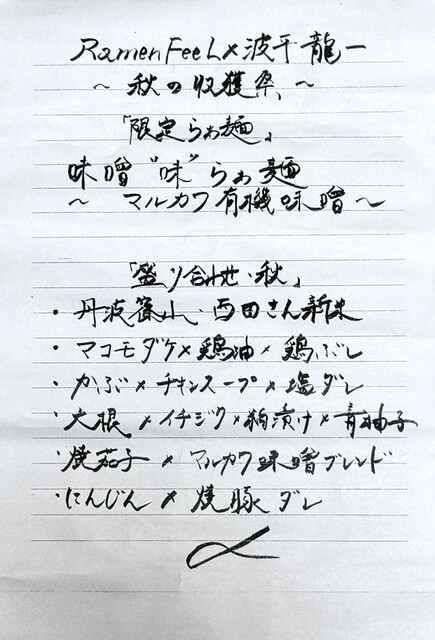 Ramen FeeL×波平龍一
～秋の収獲祭、～
「限定らぁ麺」
味噌"味"らぁ麺
～マルカワ有機味噌～
「盛り合わせ・秋」
・丹波篠山・西田さん新米
・マコモダケ×鶏油×鶏ぶし
・かぶ×チキンスープ×塩ダレ
・大根×イチジク×粕漬け×青柚子
・焼茄子×マルカワ味噌ブレンド
・にんじん×焼豚ダレ